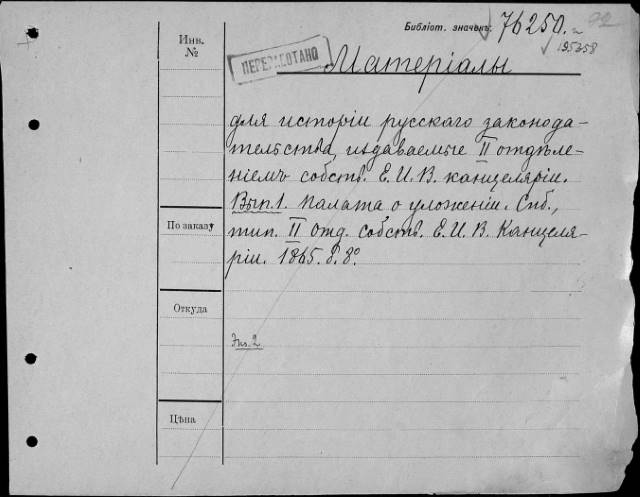 Библіот. значекъ 76250.
195358
Инв.
№
ПЕРЕРАБОТАНО
Матеріалы
для исторіи русскаго законода-
тельства, издаваемые II отдѣле-
ніемъ собств. Е. И. В. канцеляріи.
Вып. 1. Палата о уложеніи. Спб.,
По заказу
тип. II отд. собств. Е. И. В. Канцеля-
ріи. 1865. 8°.
Откуда
Экз. 2
Цѣна